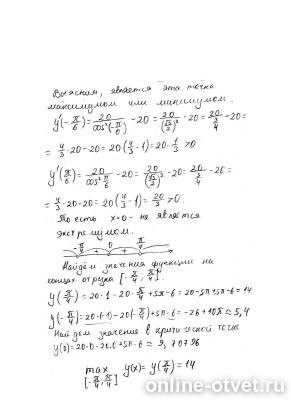 Выясним, является эта точка
максимумом или максимумом.
y'(-π/6) = 20/cos²(-π/6) - 20 = 20/(√3/2)² - 20 = 20/(3/4) - 20 =
= 4/3 · 20 - 20 = 20(4/3 - 1) = 20 · 1/3 > 0
y'(π/6) = 20/cos² π/6 - 20 = 20/(√3/2)² - 20 = 20/(3/4) - 20 =
= 4/3 · 20 - 20 = 20(4/3 - 1) = 20/3 > 0.
То есть x=0 - не является
экстремумом.
-π/4 + 0 + π/4
Найдём значения функции на
концах отрезка [-π/4; π/4]
y(π/4) = 20·1 - 20·π/4 + 5π - 6 = 20 - 5π + 5π - 6 = 14
y(-π/4) = 20·(-1) - 20(-π/4) + 5π - 6 = -26 + 10π ≈ 5,4
Найдем значение в критической точке
y(0) = 20·0 - 20·0 + 5π - 6 ≈ 9,70796
max y(x) = y(π/4) = 14
[-π/4; π/4]
online-otvet.ru